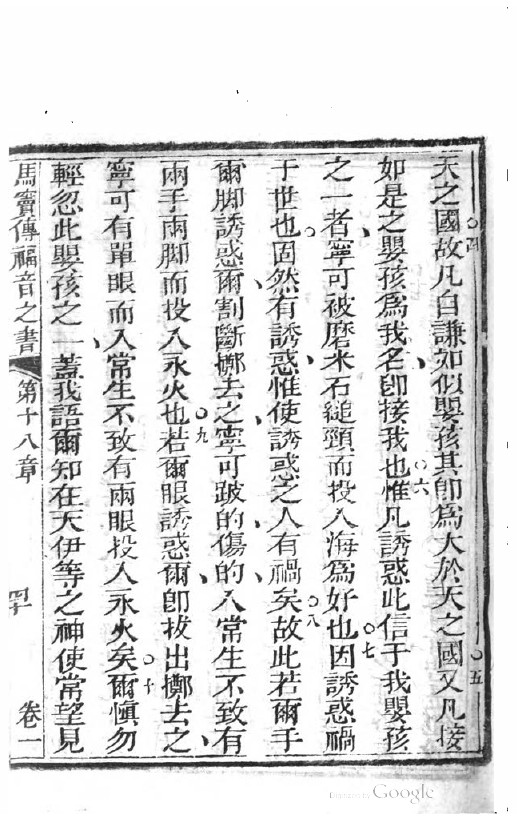 天之國○四故凡自謙如似嬰孩其卽為大於天之國○五又凡接
如是之嬰孩為我名卽接我也○六惟凡誘惑此信于我嬰孩
之一者寧可被磨米石縋頸而投入海為好也○七因誘惑禍
于世也固然有誘惑惟使誘惑之人有禍矣○八故此若爾手
爾脚誘惑爾割斷擲去之寧可跛的傷的入常生不致有
兩手兩脚而投入永火也○九若爾眼誘惑爾卽拔出擲去之
寧可有單眼而入常生不致有兩眼投入永火矣○十爾慎勿
輕忽此嬰孩之一蓋我語爾知在天伊等之神使常望見
馬竇傳福音之書 第十八章 卷一
Digitized by Google